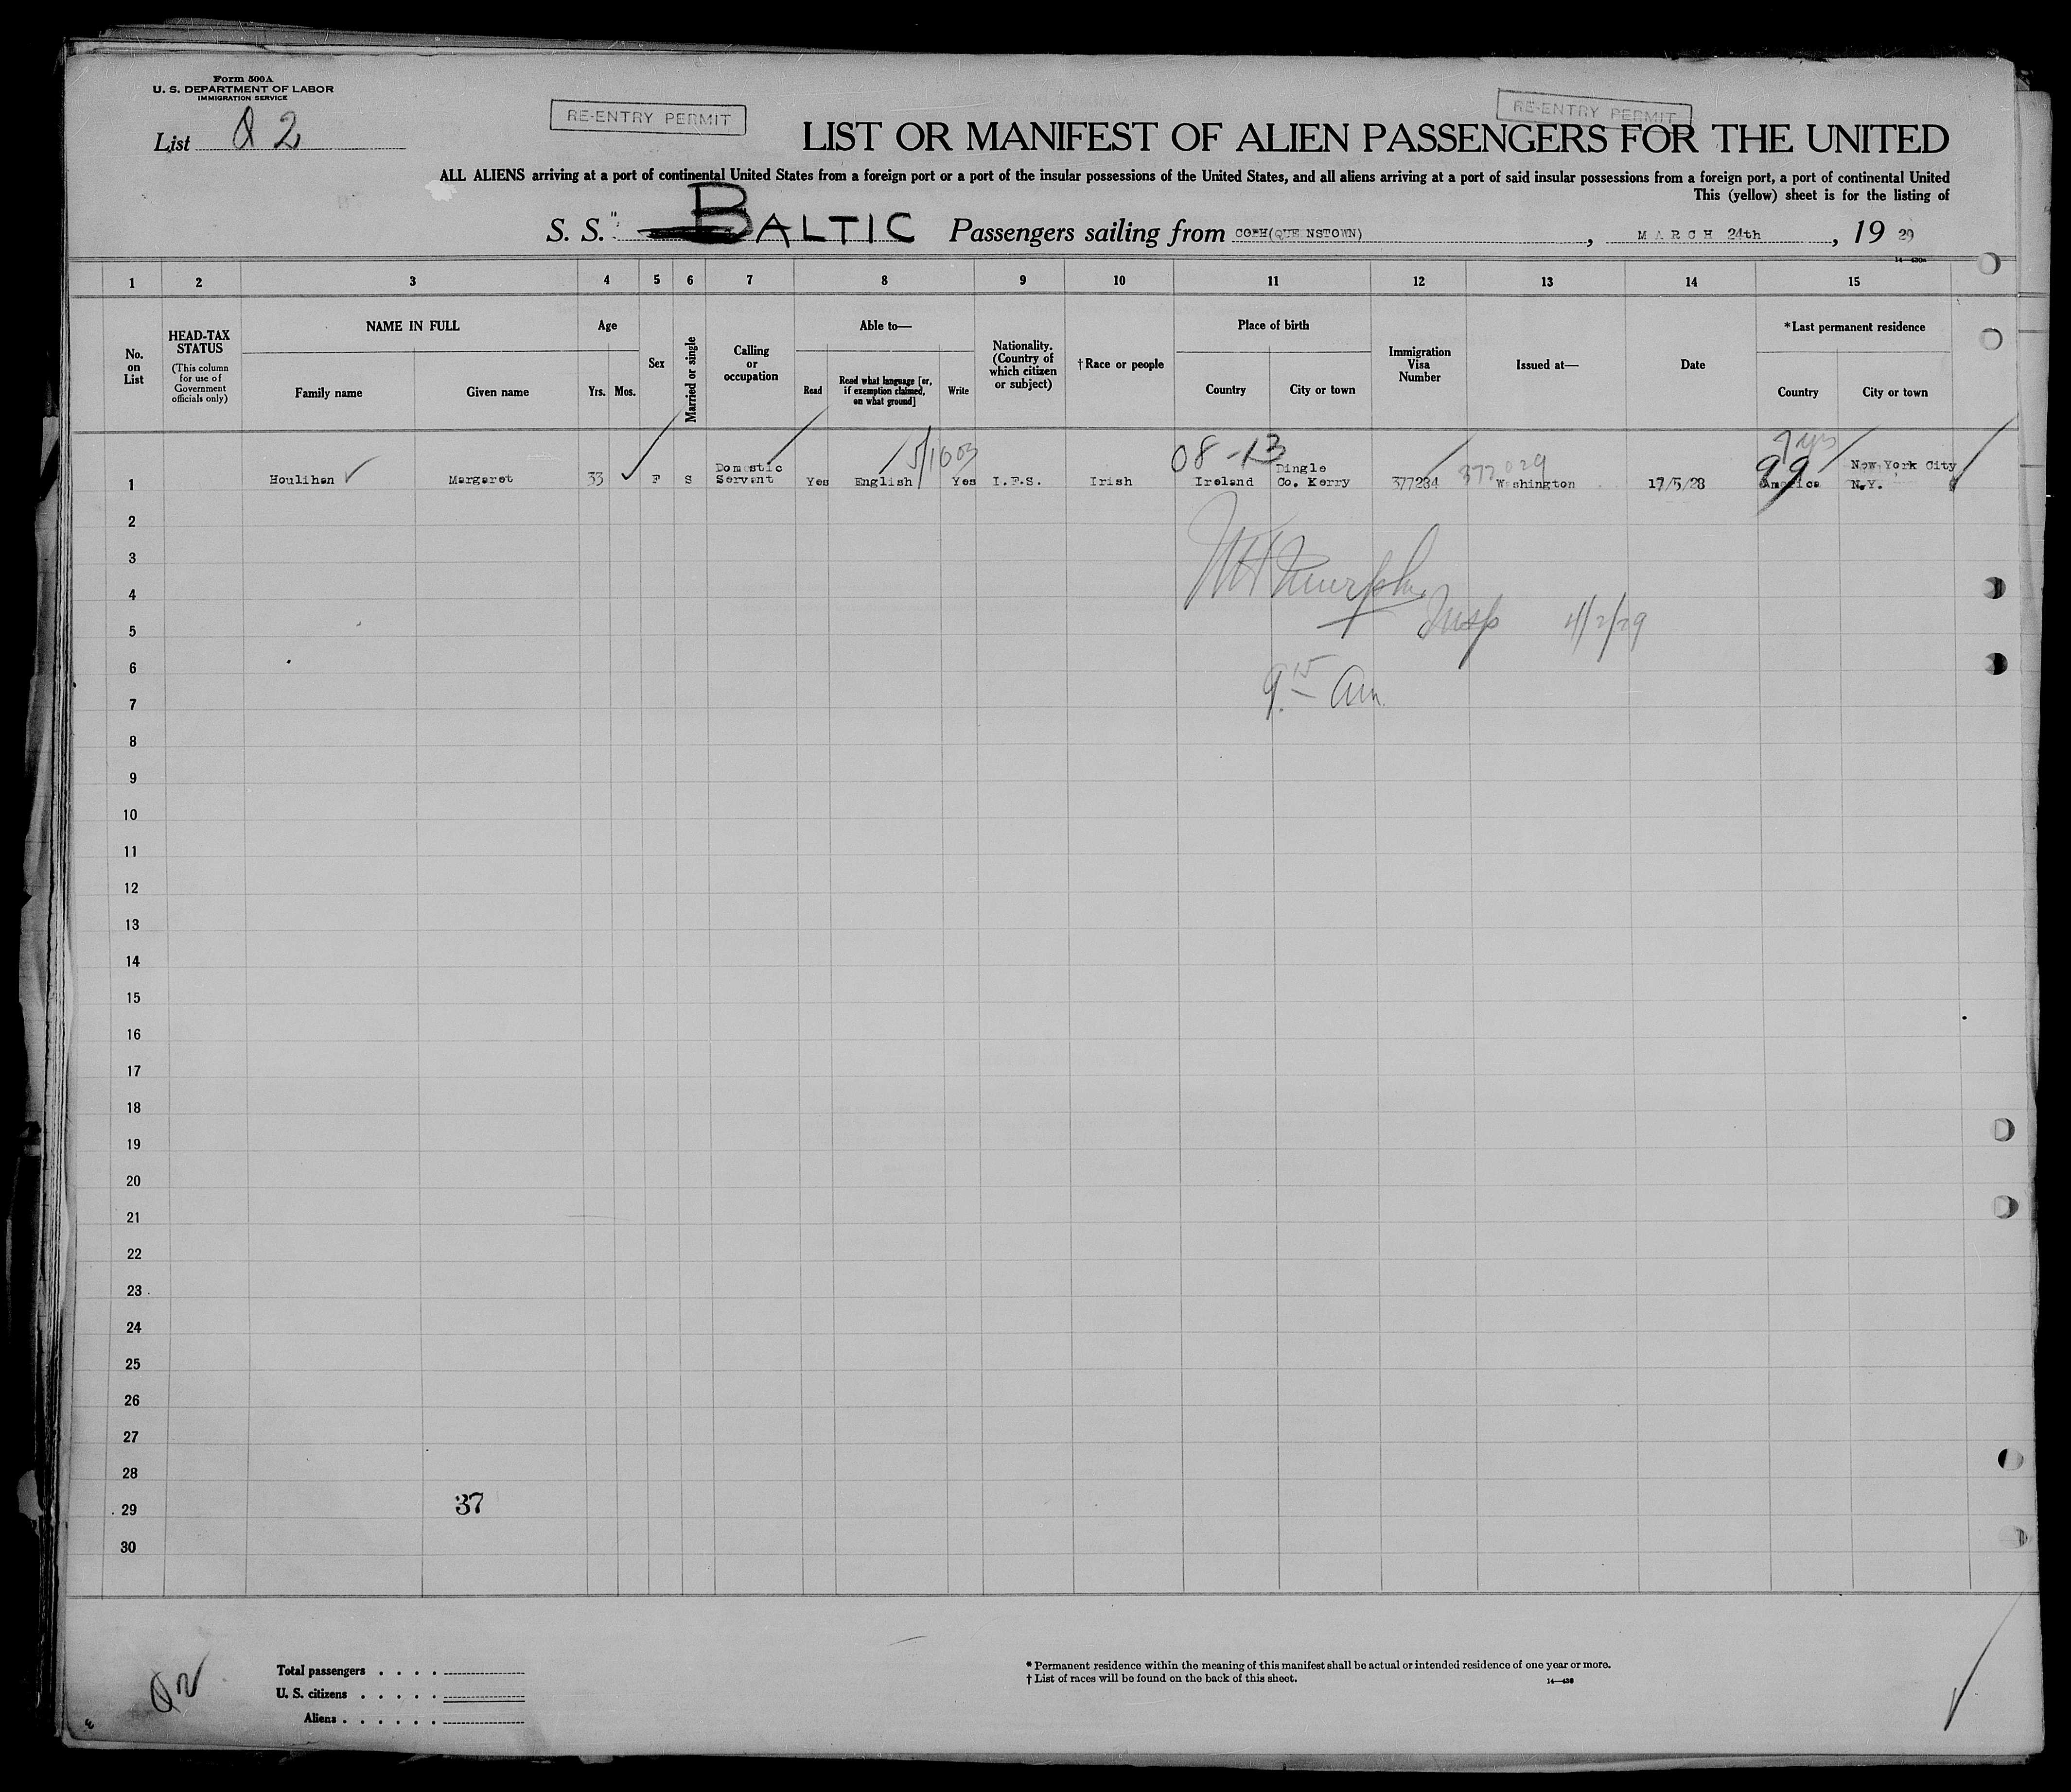 Form 500A
U. S. DEPARTMENT OF LABOR
IMMIGRATION SERVICE
List Q 2
RE-ENTRY PERMIT
RE-ENTRY PERMIT
LIST OR MANIFEST OF ALIEN PASSENGERS FOR THE UNITED
ALL ALIENS arriving at a port of continental United States from a foreign port or a port of the insular possessions of the United States, and all aliens arriving at a port of said insular possessions from a foreign port, a port of continental United
This (yellow) sheet is for the listing of
S. S. " BALTIC Passengers sailing from COBH(QUE NSTOWN), MARCH 24th, 19 29
1 2 3 4 5 6 7 8 9 10 11 12 13 14 15
No. on List
HEAD-TAX STATUS
(This column for use of Government officials only)
NAME IN FULL
Family name Given name
Age
Yrs. Mos.
Sex
Married or single
Calling or occupation
Able to—
Read
Read what language [or, if exemption claimed, on what ground]
Write
Nationality. (Country of which citizen or subject)
†Race or people
Place of birth
Country City or town
Immigration Visa Number
Issued at—
Date
*Last permanent residence
Country City or town
5/1003 08-13 7 yrs
Domestic Dingle 372029 99 New York City
1 Houlihan Margaret 33 F S Servant Yes English Yes I.F.S. Irish Ireland Co. Kerry 377284 Washington 17/5/28 America N.Y.
2
3
4 Murphy
5 Insp 4/2/29
6
7 9.15 am
8
9
10
11
12
13
14
15
16
17
18
19
20
21
22
23
24
25
26
27
28
29 37
30
Q2
Total passengers . . . .
U. S. citizens . . . . .
Aliens . . . . . .
* Permanent residence within the meaning of this manifest shall be actual or intended residence of one year or more.
† List of races will be found on the back of this sheet.
14—430